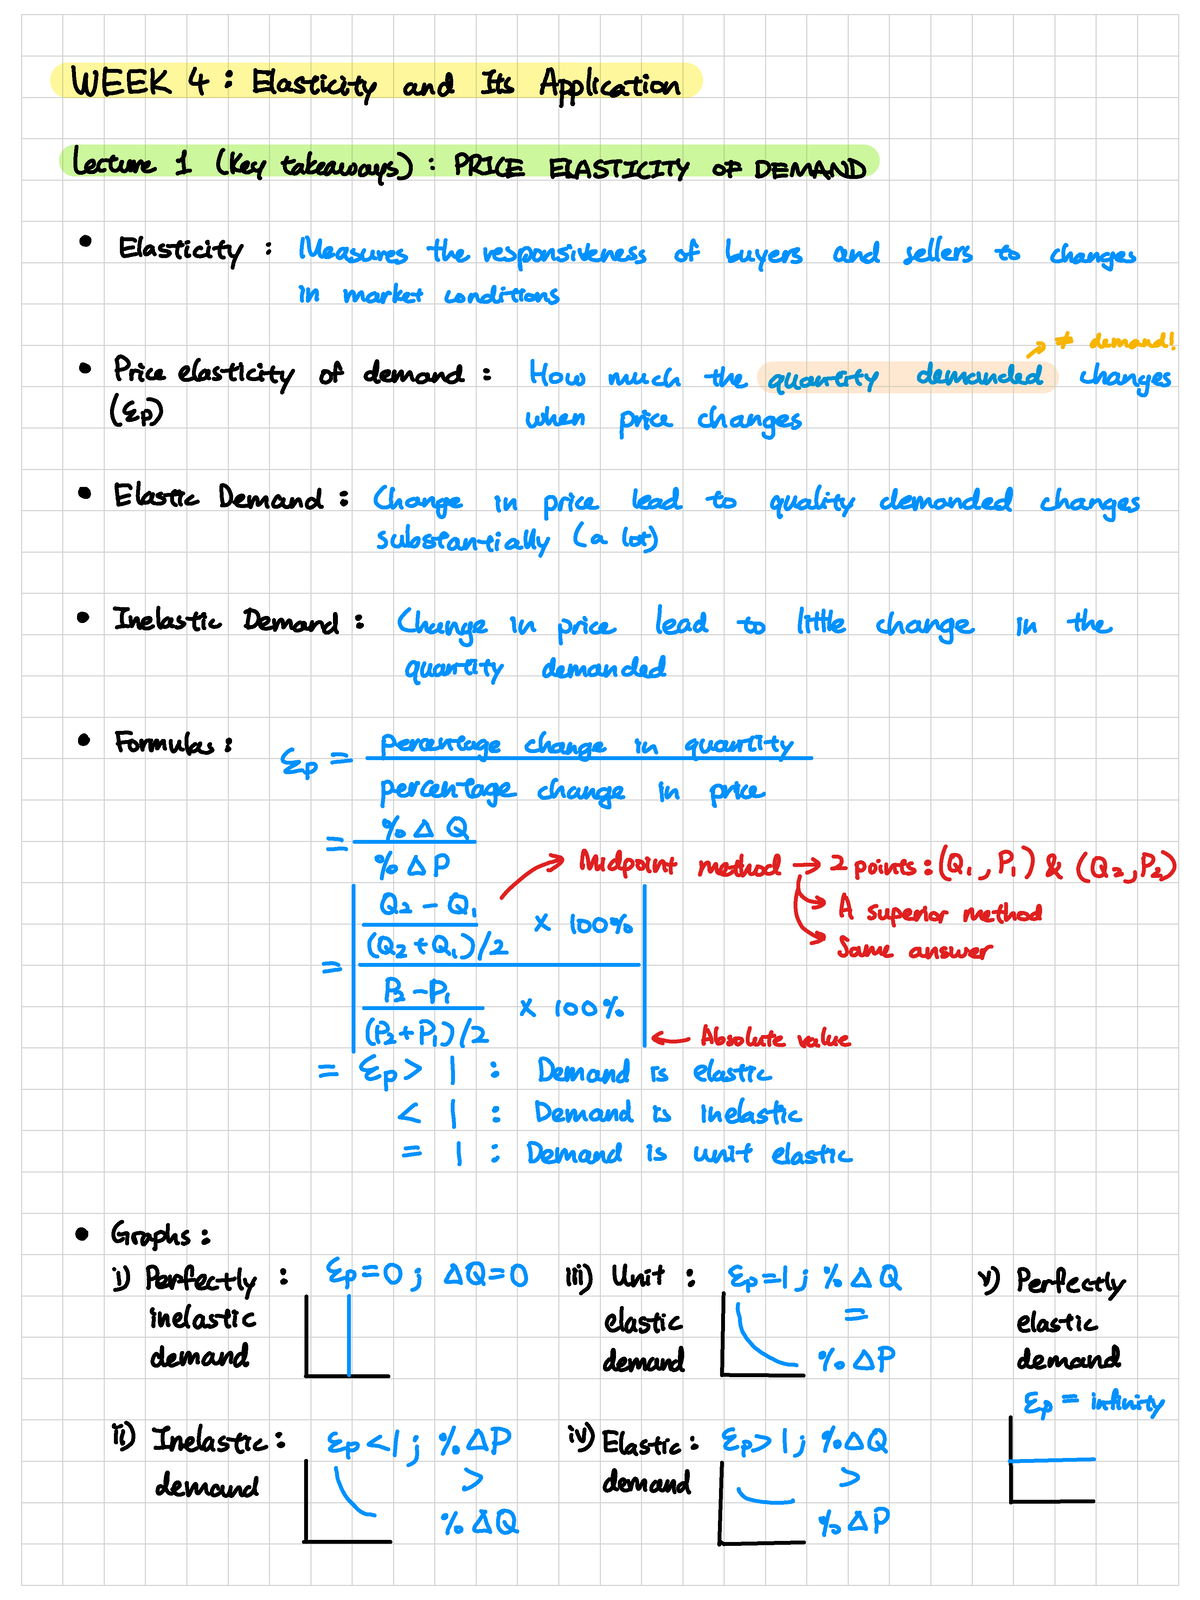 WEEK 4 : Elasticity and Its Application
Lecture 1 (Key takeaways) : PRICE ELASTICITY OF DEMAND
• Elasticity : Measures the responsiveness of buyers and sellers to changes
in market conditions
≠ demand!
• Price elasticity of demand : How much the quantity demanded changes
(Ɛp) when price changes
• Elastic Demand : Change in price lead to quality demanded changes
substantially (a lot)
• Inelastic Demand : Change in price lead to little change in the
quantity demanded
• Formulas :
Ɛp = percentage change in quantity
percentage change in price
= % Δ Q
% Δ P
→ Midpoint method → 2 points : (Q1, P1) & (Q2, P2)
→ A superior method
→ Same answer
= | Q2 - Q1
(Q2 + Q1)/2 × 100%
P2 - P1
(P2 + P1)/2 × 100% |
← Absolute value
= Ɛp > 1 : Demand is elastic
< 1 : Demand is inelastic
= 1 : Demand is unit elastic
• Graphs :
i) Perfectly : Ɛp = 0 ; ΔQ = 0
inelastic
demand
ii) Inelastic : Ɛp < 1 ; % ΔP
demand >
% ΔQ
iii) Unit : Ɛp = 1 ; % Δ Q
elastic =
demand % ΔP
iv) Elastic : Ɛp > 1 ; % ΔQ
demand >
% ΔP
v) Perfectly
elastic
demand
Ɛp = infinity